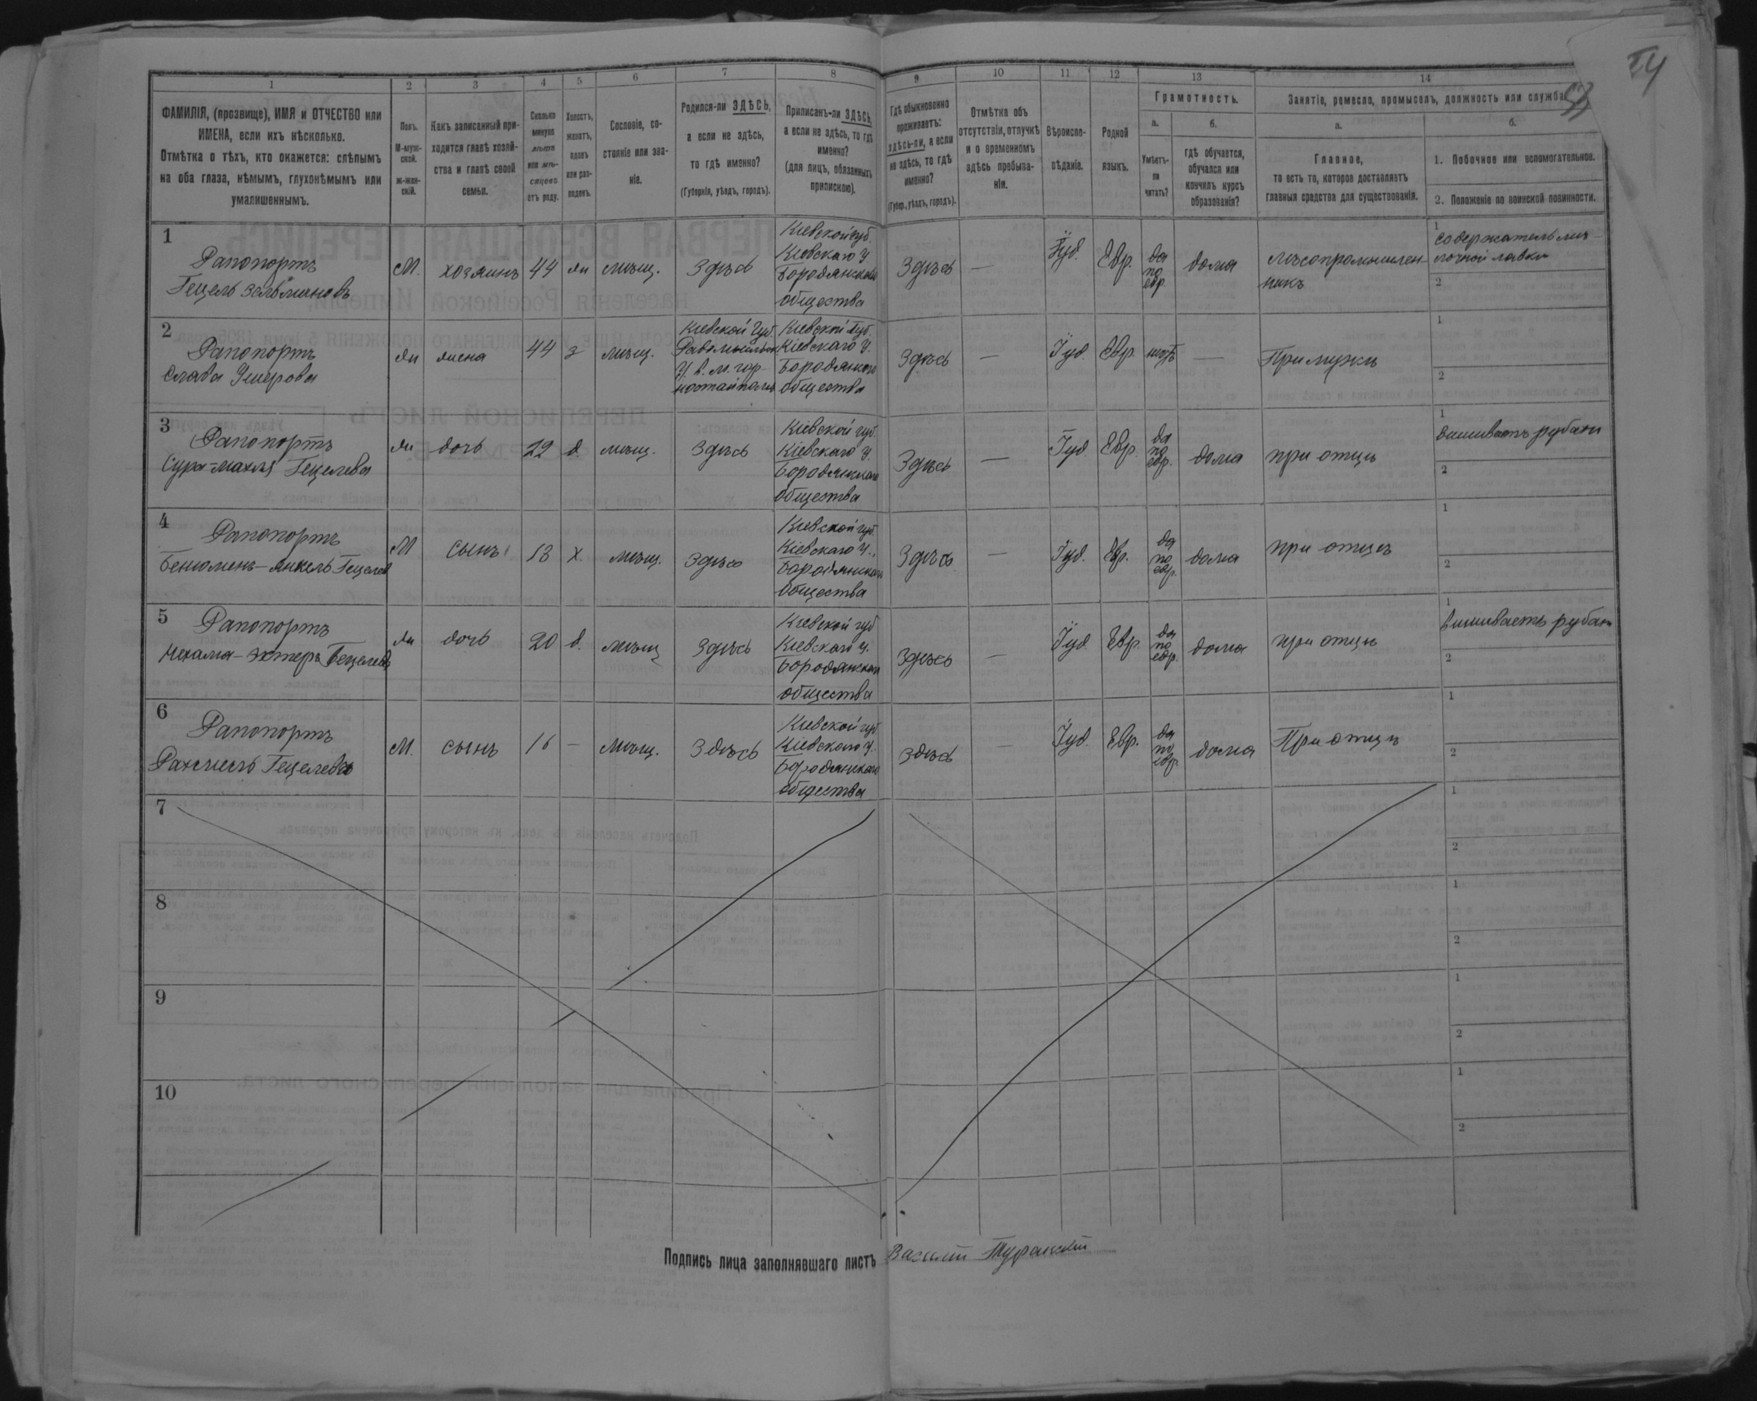 54
53
1 2 3 4 5 6 7 8 9 10 11 12 13 14
ФАМИЛІЯ, (прозвище), ИМЯ и ОТЧЕСТВО или
ИМЕНА, если ихъ нѣсколько.
Отмѣтка о тѣхъ, кто окажется: слѣпымъ
на оба глаза, нѣмымъ, глухонѣмымъ или
умалишеннымъ.
Полъ.
М-муж-
ской.
ж-жен-
скій.
Какъ записанный при-
ходится главѣ хозяй-
ства и главѣ своей
семьи.
Сколько
минуло
лѣтъ
или мѣ-
сяцевъ
отъ роду.
Холостъ,
женатъ,
вдовъ
или раз-
веденъ.
Сословіе, со-
стояніе или зва-
ніе.
Родился-ли ЗДѢСЬ,
а если не здѣсь,
то гдѣ именно?
(Губернія, уѣздъ, городъ).
Приписанъ-ли ЗДѢСЬ,
а если не здѣсь, то гдѣ
именно?
(для лицъ, обязанныхъ
припискою).
Гдѣ обыкновенно
проживаетъ:
здѣсь-ли, а если
не здѣсь, то гдѣ
именно?
(Губер., уѣздъ, городъ).
Отмѣтка объ
отсутствіи, отлучкѣ
и о временномъ
здѣсь пребыва-
ніи.
Вѣроиспо-
вѣданіе.
Родной
языкъ.
Грамотность.
а.
Умѣетъ-
ли
читать?
б.
гдѣ обучается,
обучался или
кончилъ курсъ
образованія?
Занятіе, ремесло, промыселъ, должность или служба.
а.
Главное,
то есть то, которое доставляетъ
главныя средства для существованія.
б.
1. Побочное или вспомогательное.
2. Положеніе по воинской повинности.
1
Рапопортъ
Гецель Зельмановъ
М.
хозяинъ
44
жн
мѣщ.
Здѣсь
Кіевской губ.
Кіевскаго у.
Бородянскаго
общества
Здѣсь
—
Іуд.
Евр.
да
по
евр.
дома
мѣсопромышлен-
никъ
1
содержатель мѣ-
лочной лавки
2
2
Рапопортъ
Слава Ушерова
жн
жена
44
з
мѣщ.
Кіевской губ.
Радомысльск
у. в. м. гор-
ностайполь
Кіевской губ.
Кіевскаго у.
Бородянскаго
общества
Здѣсь
—
Іуд
Евр
нѣтъ
—
При мужѣ
1
2
3
Рапопортъ
Сура-Махля Гецелева
жн
дочь
22
д
мѣщ.
Здѣсь
Кіевской губ.
Кіевскаго у.
Бородянскаго
общества
Здѣсь
—
Іуд
Евр.
да
по
евр.
дома
при отцѣ
1
вышиваетъ рубахи
2
4
Рапопортъ
Беніоменъ-Янкель Гецелев
М
сынъ
18
х.
мѣщ.
Здѣсь
Кіевской губ.
Кіевскаго у.
Бородянскаго
общества
Здѣсь
—
Іуд.
Евр.
да
по
евр.
дома
при отцѣ
1
2
5
Рапопортъ
Нехама-Эстеръ Гецелева
жн
дочь
20
д.
мѣщ
Здѣсь
Кіевской губ
Кіевскаго у.
Бородянскаго
общества
Здѣсь
—
Іуд.
Евр.
да
по
евр.
дома
при отцѣ
1
вышиваетъ рубахи
2
6
Рапопортъ
Гецелевъ
М.
сынъ
16
—
мѣщ.
Здѣсь
Кіевской губ
Кіевскаго у.
Бородянскаго
общества
Здѣсь
—
Іуд.
Евр.
да
по
евр.
дома
При отцѣ
1
2
7
1
2
8
1
2
9
1
2
10
1
2
Подпись лица заполнявшаго листъ Василій